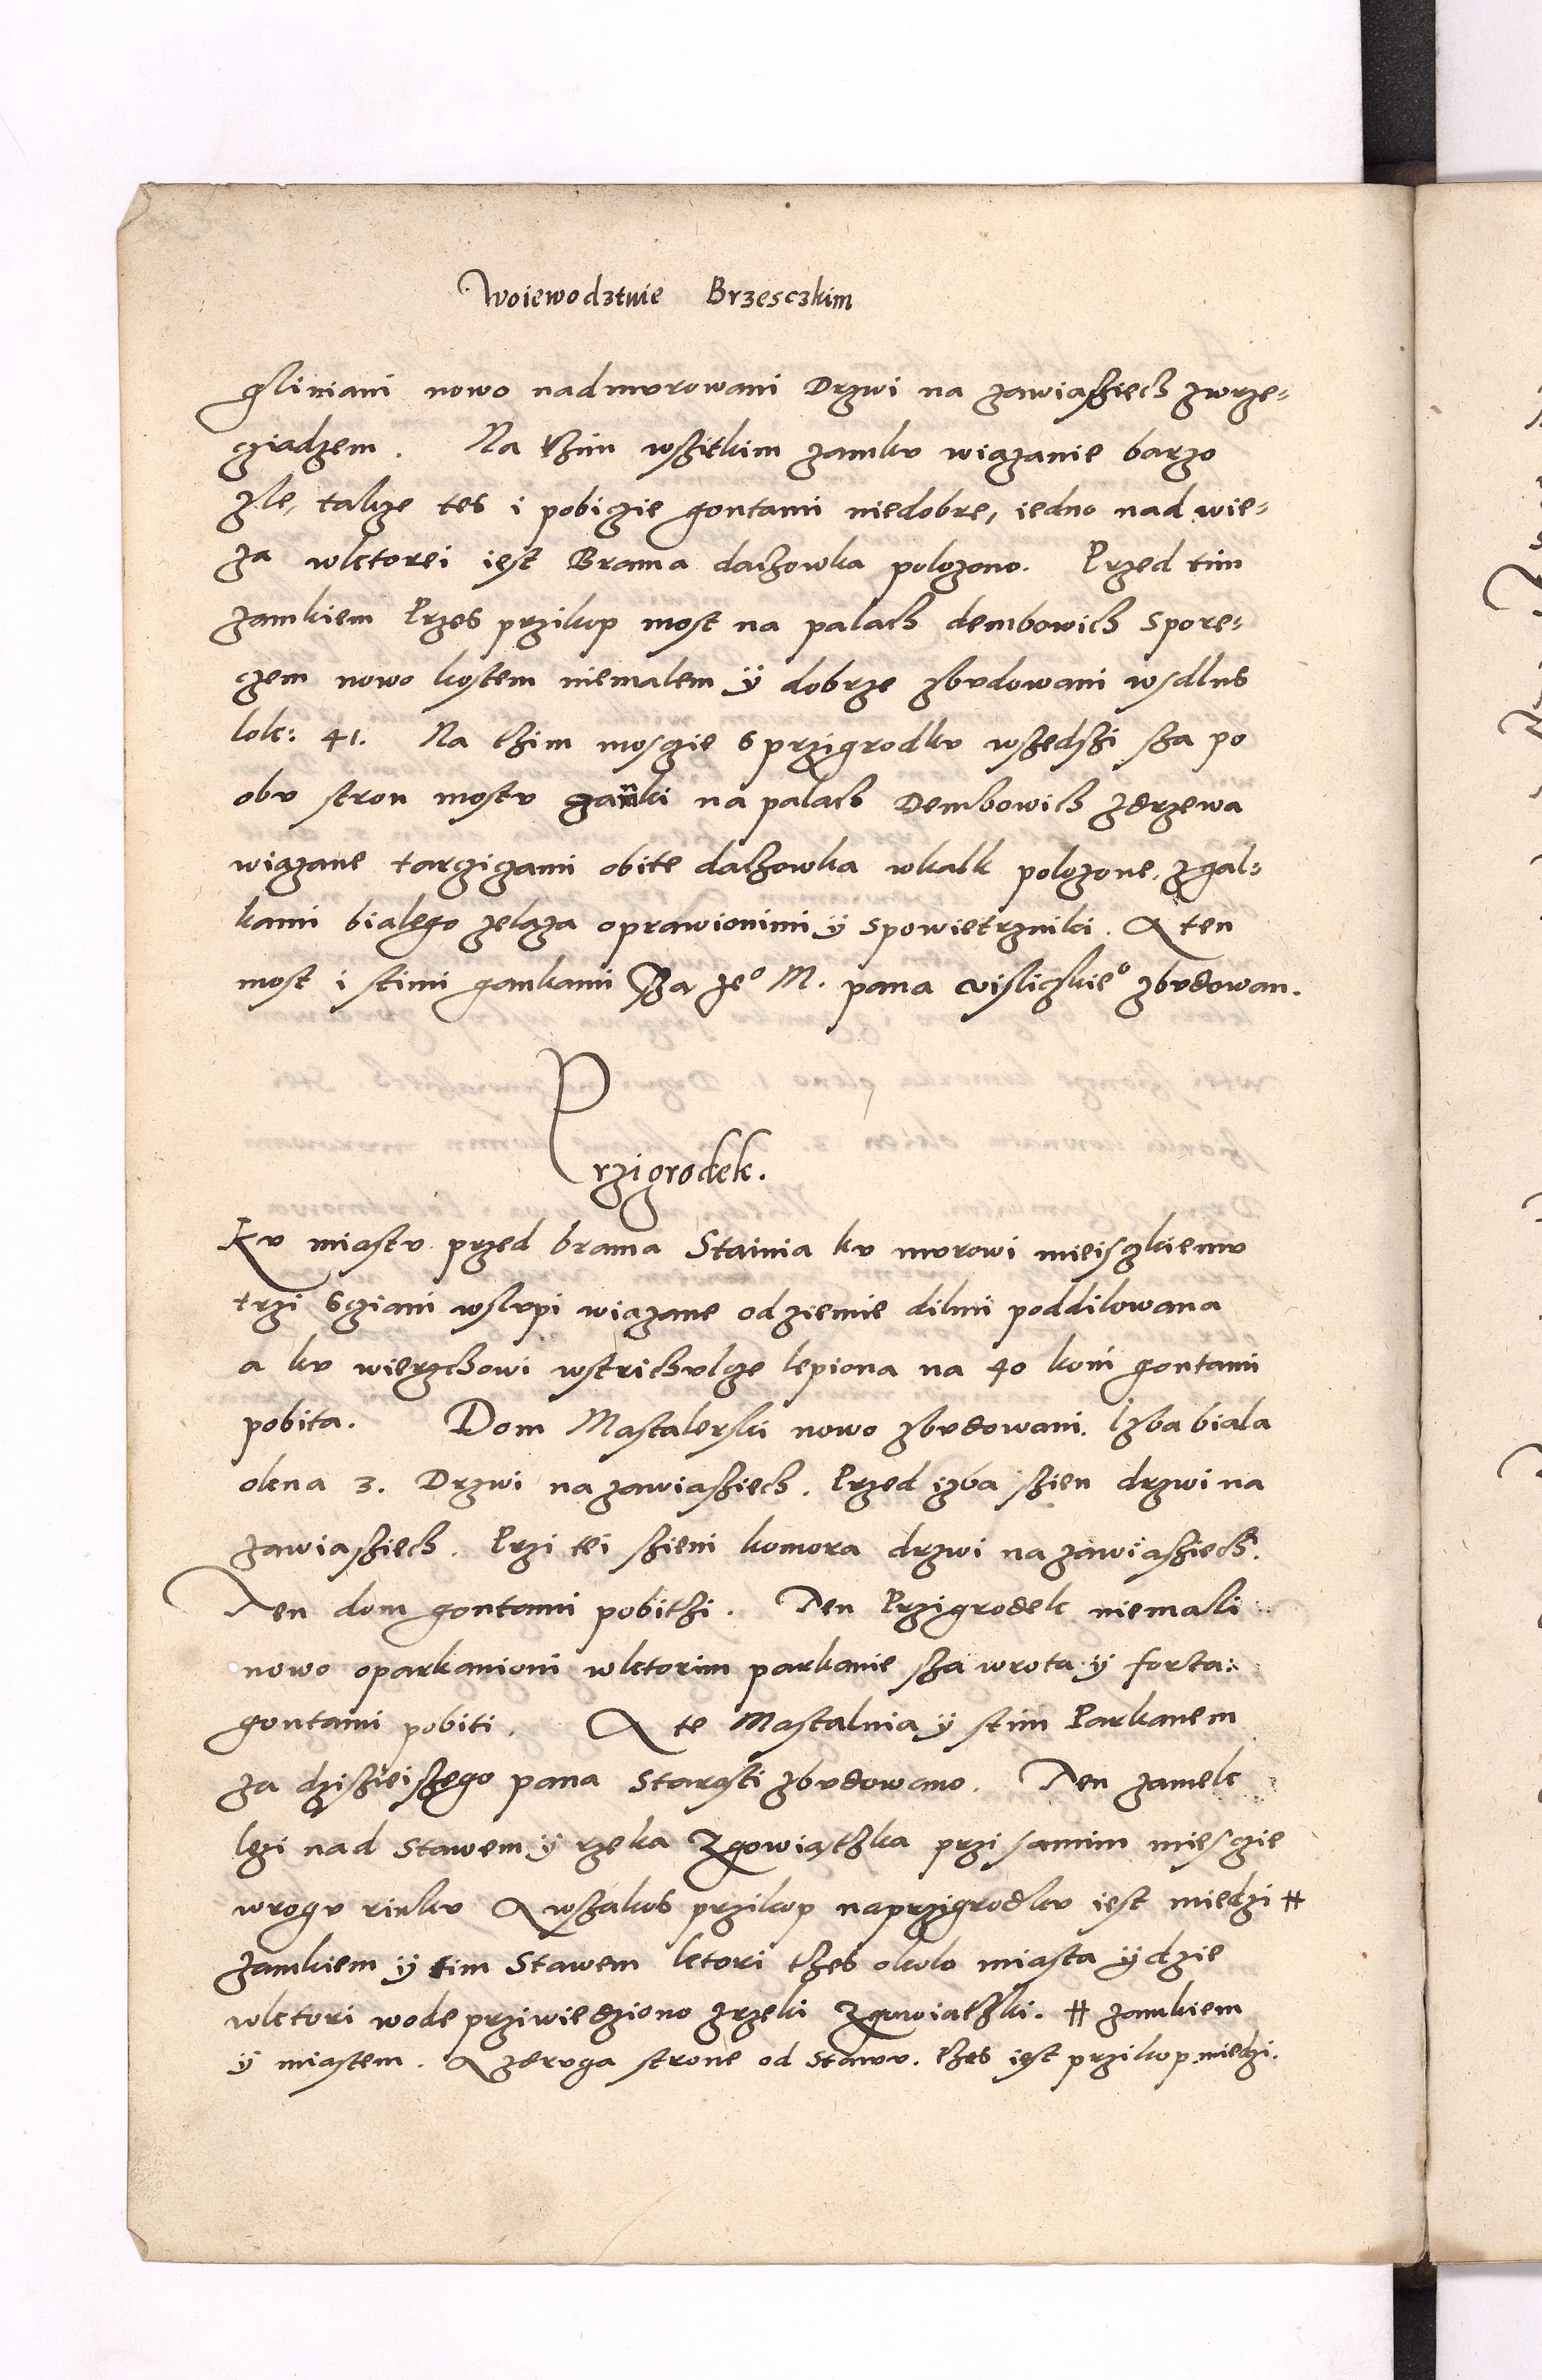 Woiewodztwie Brzesczkim
gliniani nowo nadmvrowani Drzwi na zawiassiech zwrze=
cziadzem. Na thim wszitkim zamkv wiązanie barzo
zle, takze tes i pobiczie gontami niedobre, iedno nad wie=
za wktorei iest Brama dachowka polozono. Przed tim
zamkiem Przes przikop most na palach dembowich spore=
czem nowo kostem niemalem ÿ dobrze zbvdowani wsdlus
lok: 41. Na thim mosczie s przigrodkv wszedszi sza po
obv stron mostv ganki na palach Dembowich zdrzewa
wiązane tarczicami obite dachowka wkalk polozone, zgal=
kami bialego zelaza oprawionimi ÿ spowietrzniki. A ten
most i stimi gankami sza Je° M. pana wisliczkie° zbvdowan.
Przigrodek.
Kv miastv przed brama Stainia kv mvrowi mieisczkiemv
trzi sciani wslvpi wiązane od ziemie dilmi poddilowana
a kv wierzchowi wstrichvlcze lepiona na 40 koni gontami
pobita. Dom Mastalerski nowo zbvdowani. Izba biala
okna 3. Drzwi na zawiasziech. Przed izba szien drzwi na
zawiasziech. Przi tei szieni komora drzwi na zawiasziech.
Ten dom gontami pobithi. Ten Przigrodek niemalli
nowo oparkanioni wktorim parkanie sza wrota ÿ forta:
gontami pobiti. A te Mastalnia ÿ stim Parkanem
za dziszieiszego pana Starosti zbvdowano. Ten zamek
lezi nad Stawem ÿ rzeka Zgowiąthka przi samim miesczie
wrogv rinkv A wszakos przikop naprzigrodkv iest miedzi #
zamkiem ÿ tim Stawem ktori thes okolo miasta ÿdzie
wktori wode prziwiedziono zrzeki Zgowiathki. # zamkiem
ÿ miastem. A zdrvga strone od Stawv. thes iest przikop miedzi.